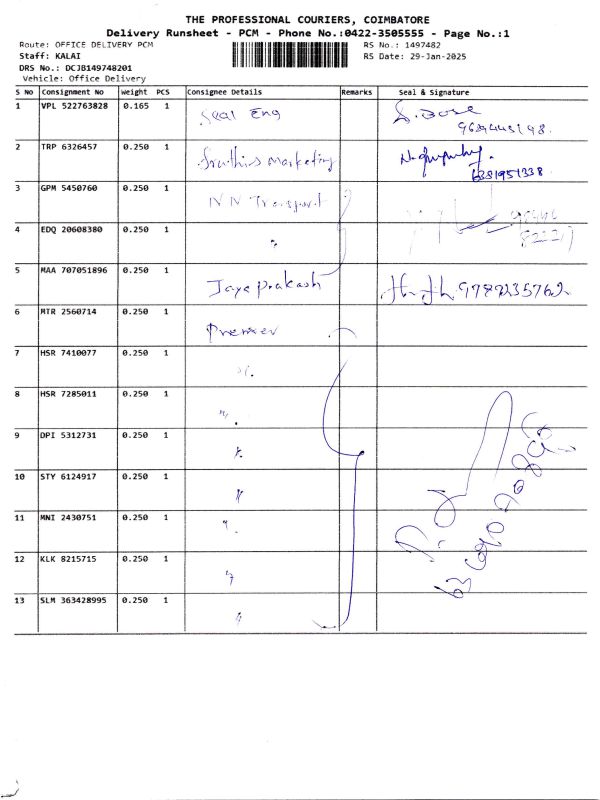 THE PROFESSIONAL COURIERS, COIMBATORE
Delivery Runsheet - PCM - Phone No.:0422-3505555 - Page No.:1
Route: OFFICE DELIVERY PCM
Staff: KALAI
DRS No.: DCJB149748201
Vehicle: Office Delivery
RS No.: 1497482
RS Date: 29-Jan-2025
S No Consignment No Weight PCS Consignee Details Remarks Seal & Signature
1 VPL 522763828 0.165 1 Seal Eng S. Bose
2 TRP 6326457 0.250 1 Sruthies marketing
6381951338
3 GPM 5450760 0.250 1 N N Transport
4 EDQ 20608380 0.250 1 "
5 MAA 707051896 0.250 1 Jaya prakash 9787235762
6 MTR 2560714 0.250 1 Premier
7 HSR 7410077 0.250 1 "
8 HSR 7285011 0.250 1 "
9 DPI 5312731 0.250 1 "
10 STY 6124917 0.250 1 "
11 MNI 2430751 0.250 1 "
12 KLK 8215715 0.250 1 "
13 SLM 363428995 0.250 1 "